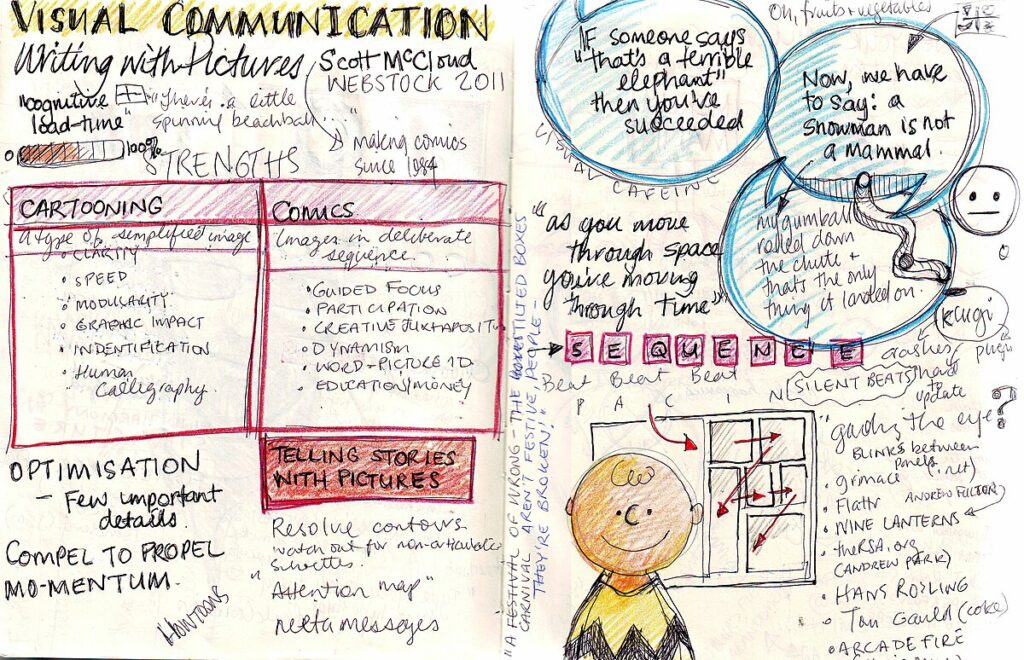 VISUAL COMMUNICATION
Writing with Pictures, Scott McCloud
WEBSTOCK 2011
"cognitive
load-time"
"There's a little
spinning beachball....
0
100%
→ making comics
since 1984
STRENGTHS
CARTOONING
A type of simplified image
• CLARITY
• SPEED
• MODULARITY
• GRAPHIC IMPACT
• INDENTIFICATION
• Human
Calligraphy
COMICS
Images in deliberate
sequence.
• GUIDED FOCUS
• PARTICIPATION
• CREATIVE JUXTAPOSITION
• DYNAMISM
• WORD-PICTURE ID
• EDUCATION/MONEY
OPTIMISATION
- Few important
details.
COMPEL TO PROPEL
MO-MENTUM.
Howtoons
TELLING STORIES
WITH PICTURES
Resolve contours
watch out for non-articulate
"Attention map"
metta messages
"A FESTIVAL OF WRONG - THE TILTED BOXES
CARNIVAL AREN'T FESTIVE, PEOPLE -
THEY'RE BROKEN!"
Oh, fruits + vegetables
IF someone says
"that's a terrible
elephant"
then you've
succeeded
VISUAL CAFEINE
Now, we have
to say: a
snowman is not
a mammal.
my gumball
rolled down
the chute +
that's the only
thing it landed on.
"as you move
through space
you're moving
through time"
SEQUENCE
Beat Beat Beat
P A C N
SILENT BEATS
crashes/
hard
to
update
plugin
?
"guiding the eye"
BLINKS between
panels
• grimace
• Flattr
ANDREW FULTON)
• NINE LANTERNS
• theRSA.org
(ANDREW PARK)
• HANS ROSLING
• Tom Gauld (coke)
• ARCADE FIRE